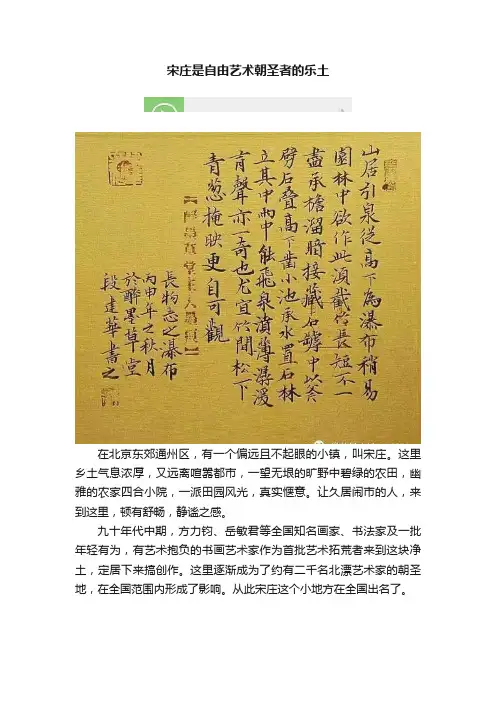 宋庄是自由艺术朝圣者的乐土
山居引泉從高下為瀑布稍易
園林中欲作此須截竹長短不一
盡承檐溜暗接藏石罅中以斧
劈石叠高下凿小池承水置石林
立其中雨中能飛泉濆薄潺湲
有聲亦一奇也尤宜竹間松下
青葱掩映更自可觀
長物志之瀑布
丙申年之秋月
於醉墨草堂
段建華書之
在北京东郊通州区，有一个偏远且不起眼的小镇，叫宋庄。这里
乡土气息浓厚，又远离喧嚣都市，一望无垠的旷野中碧绿的农田，幽
雅的农家四合小院，一派田园风光，真实惬意。让久居闹市的人，来
到这里，顿有舒畅，静谧之感。
九十年代中期，方力钧、岳敏君等全国知名画家、书法家及一批
年轻有为，有艺术抱负的书画艺术家作为首批艺术拓荒者来到这块净
土，定居下来搞创作。这里逐渐成为了约有二千名北漂艺术家的朝圣
地，在全国范围内形成了影响。从此宋庄这个小地方在全国出名了。